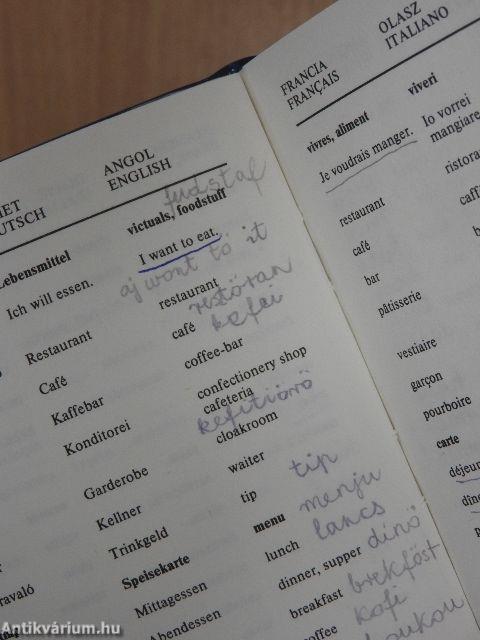 ANGOL
ENGLISH
fudstaf
victuals, foodstuff
I want to eat.
aj wont tö it
restaurant
restöran
café
kefei
coffee-bar
confectionery shop
cafeteria
kefitiörö
cloakroom
waiter
tip
tip
menu
menju
lunch
lancs
dinner, supper
dinö
breakfast
brekföst
coffee
kofi
UTSCH
Lebensmittel
Ich will essen.
Restaurant
Café
Kaffebar
Konditorei
Garderobe
Kellner
Trinkgeld
Speisekarte
Mittagessen
Abendessen
ravaló
FRANCIA
FRANÇAIS
vivres, aliment
Je voudrais manger.
restaurant
café
bar
pâtisserie
vestiaire
garçon
pourboire
carte
OLASZ
ITALIANO
viveri
Io vorrei
mangiare
Antikvárium.hu